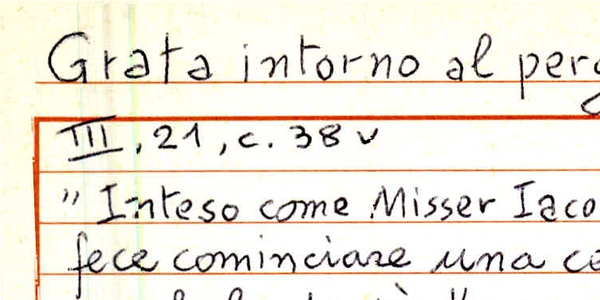 Grata intorno al per
III, 21, c. 38 v
" Inteso come Misser Iaco
fece cominciare una ce